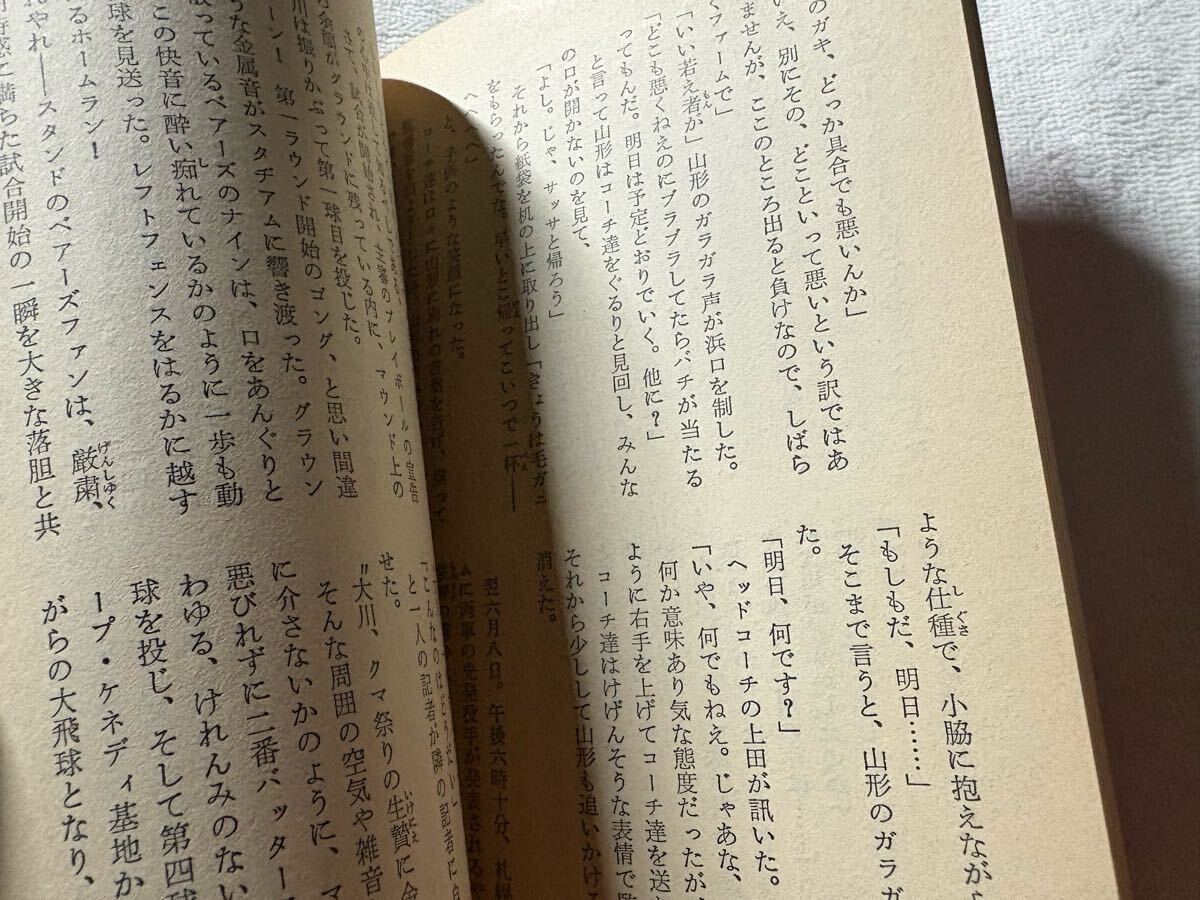 のガキ、どっか具合でも悪いんか」
え、別にその、どこといって悪いという訳ではあ
ませんが、ここのところ出ると負けなので、しばら
くファームで」
「いい若え者が」山形のガラガラ声が浜口を制した。
もん
「どこも悪くねえのにブラブラしてたらバチが当たる
ってもんだ。明日は予定どおりでいく。他に？」
と言って山形はコーチ達をぐるりと見回し、みんな
の口が開かないのを見て、
「よし。じゃ、サッサと帰ろう」
それから紙袋を机の上に取り出し「きょうは毛ガニ
をもらったんでな。早いとこ帰ってこいつで一杯――
へへへ」
と、子供のような笑顔になった。
コーチ達は口々に山形に別れの言葉を告げ、
ような仕種で、小脇に抱えながら
しぐさ
「もしもだ、明日……」
そこまで言うと、山形のガラガ
た。
「明日、何です？」
ヘッドコーチの上田が訊いた。
「いや、何でもねえ。じゃあな、
何か意味あり気な態度だったが
ように右手を上げてコーチ達を送
コーチ達はけげんそうな表情で
それから少しして山形も追いかける
消えた。
翌六月八日。午後六時十分、札幌
ムに両軍の先発投手が発表される
さて、試合が開始され、主審のプレイボールの宣告
がグラウンドに残っている内に、マウンド上の
川は振りかぶって第一球目を投じた。
ーン！　第一ラウンド開始のゴング、と思い間違
うな金属音がスタヂアムに響き渡った。グラウン
散っているベアーズのナインは、口をあんぐりと
この快音に酔い痴れているかのように一歩も動
し
球を見送った。レフトフェンスをはるかに越す
るホームラン！
やれ――スタンドのベアーズファンは、厳粛、
げんしゅく
感に満ちた試合開始の一瞬を大きな落胆と共
「こんなのはどうだい」
と一人の記者が隣の記者に
せた。
〝大川、クマ祭りの生贄に
いけにえ
そんな周囲の空気や雑音
に介さないかのように、マ
悪びれずに二番バッター
わゆる、けれんみのない
球を投じ、そして第四球
ープ・ケネディ基地か
がらの大飛球となり、